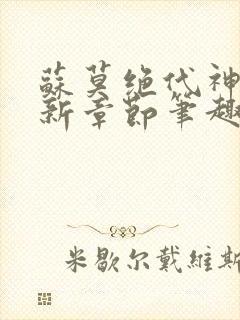 蘇莫绝代神
新章節筆趣
米歇尔戴維斯